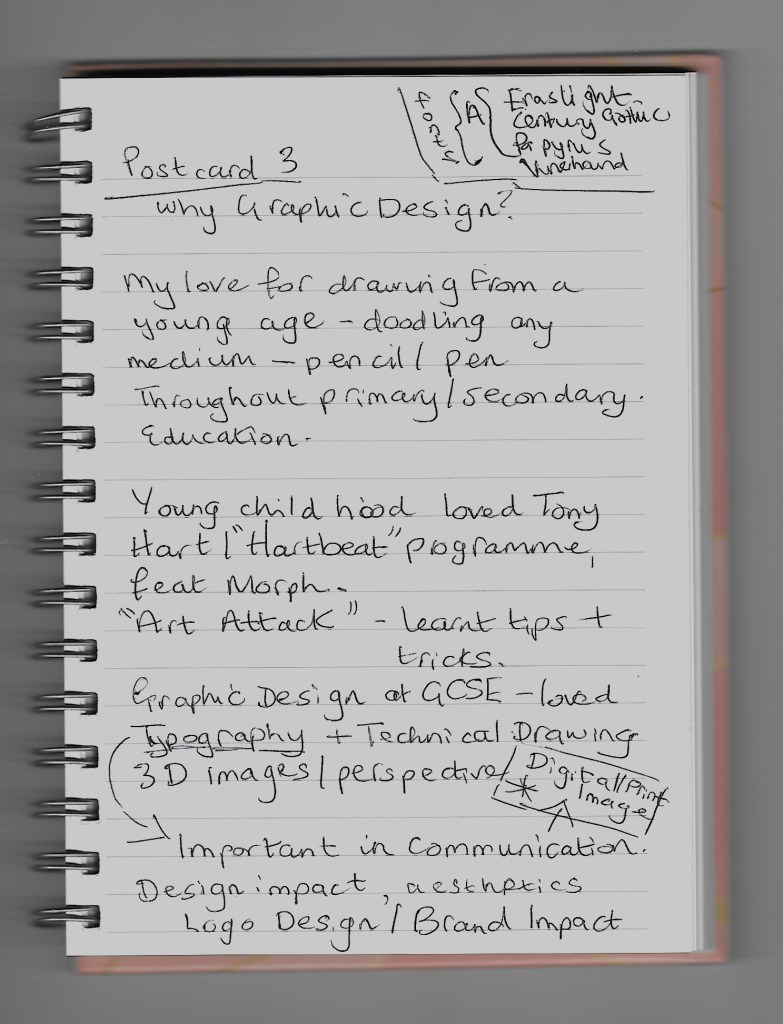 Fonts { A { Eraslight
Century Gothic
Papyrus
Vinerhand
Postcard 3
Why Graphic Design?
My love for drawing from a
young age - doodling any
medium - pencil / pen
Throughout primary / secondary.
Education.
Young childhood loved Tony
Hart / "Hartbeat" programme,
feat Morph.
"Art Attack" - learnt tips +
tricks.
Graphic Design at GCSE - loved
Typography + Technical Drawing
3D images / perspective /
* Digital / Print
Image
Important in Communication.
Design impact, aesthetics
Logo Design / Brand Impact